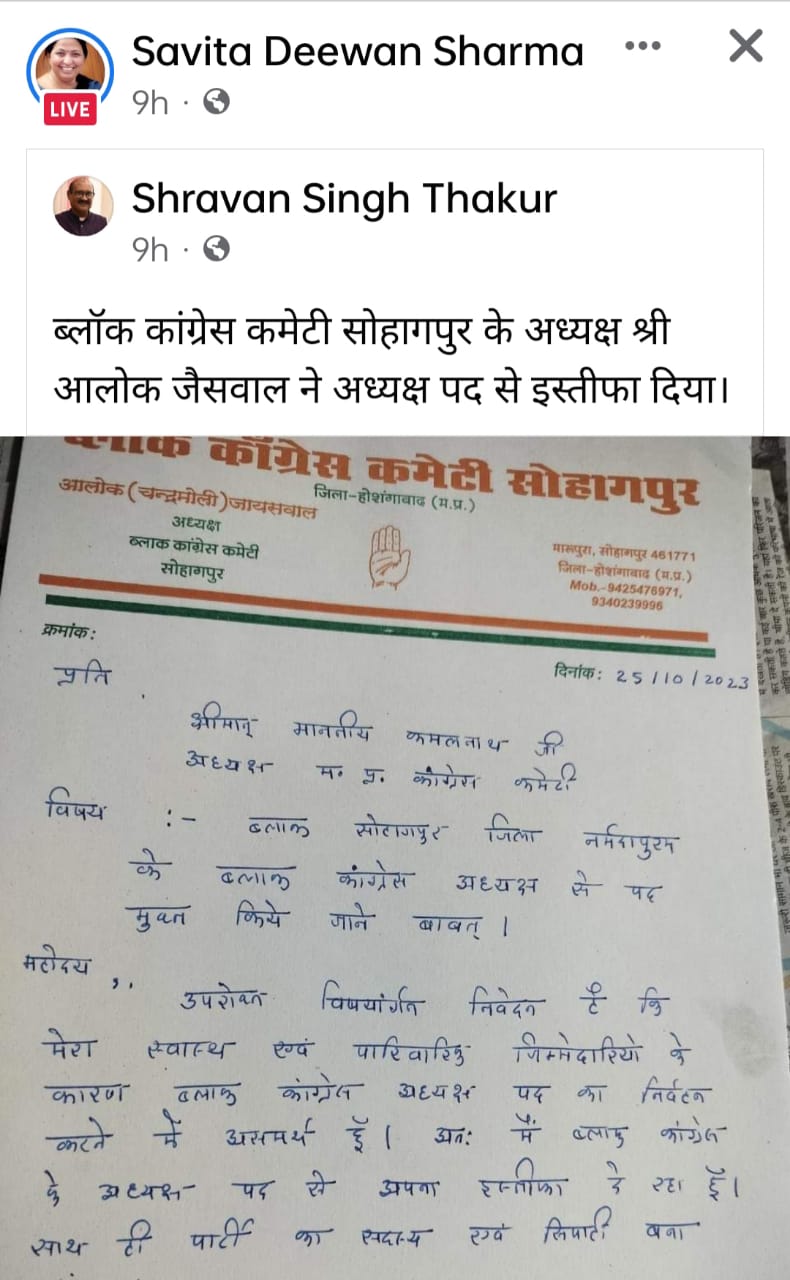 Savita Deewan Sharma
LIVE
9h
Shravan Singh Thakur
9h
ब्लॉक कांग्रेस कमेटी सोहागपुर के अध्यक्ष श्री
आलोक जैसवाल ने अध्यक्ष पद से इस्तीफा दिया।
ब्लाक कॉंग्रेस कमेटी सोहागपुर
जिला-होशंगाबाद (म.प्र.)
आलोक (चन्द्रमोली) जायसवाल
अध्यक्ष
ब्लाक कांग्रेस कमेटी
सोहागपुर
सोहागपुर 461771
जिला-होशंगाबाद (म.प्र.)
Mob.-9425476971,
9340239996
क्रमांक:
दिनांक: 25/10/2023
प्रति
श्रीमान् माननीय कमलनाथ जी
अध्यक्ष म. प्र. कांग्रेस कमेटी
विषय :- ब्लाक सोहागपुर जिला नर्मदापुरम
के ब्लाक कांग्रेस अध्यक्ष से पद
मुक्त किये जाने बावत् |
महोदय,,
उपरोक्त विषयांर्गत निवेदन है कि
मेरा स्वास्थ एवं पारिवारिक जिम्मेदारियो के
कारण ब्लाक कांग्रेस अध्यक्ष पद का निर्वहन
करने में असमर्थ हूँ | अत: मैं ब्लाक कांग्रेस
के अध्यक्ष पद से अपना इस्तीफा दे रहा हूँ |
साथ ही पार्टी का सदस्य एवं सिपाही बना